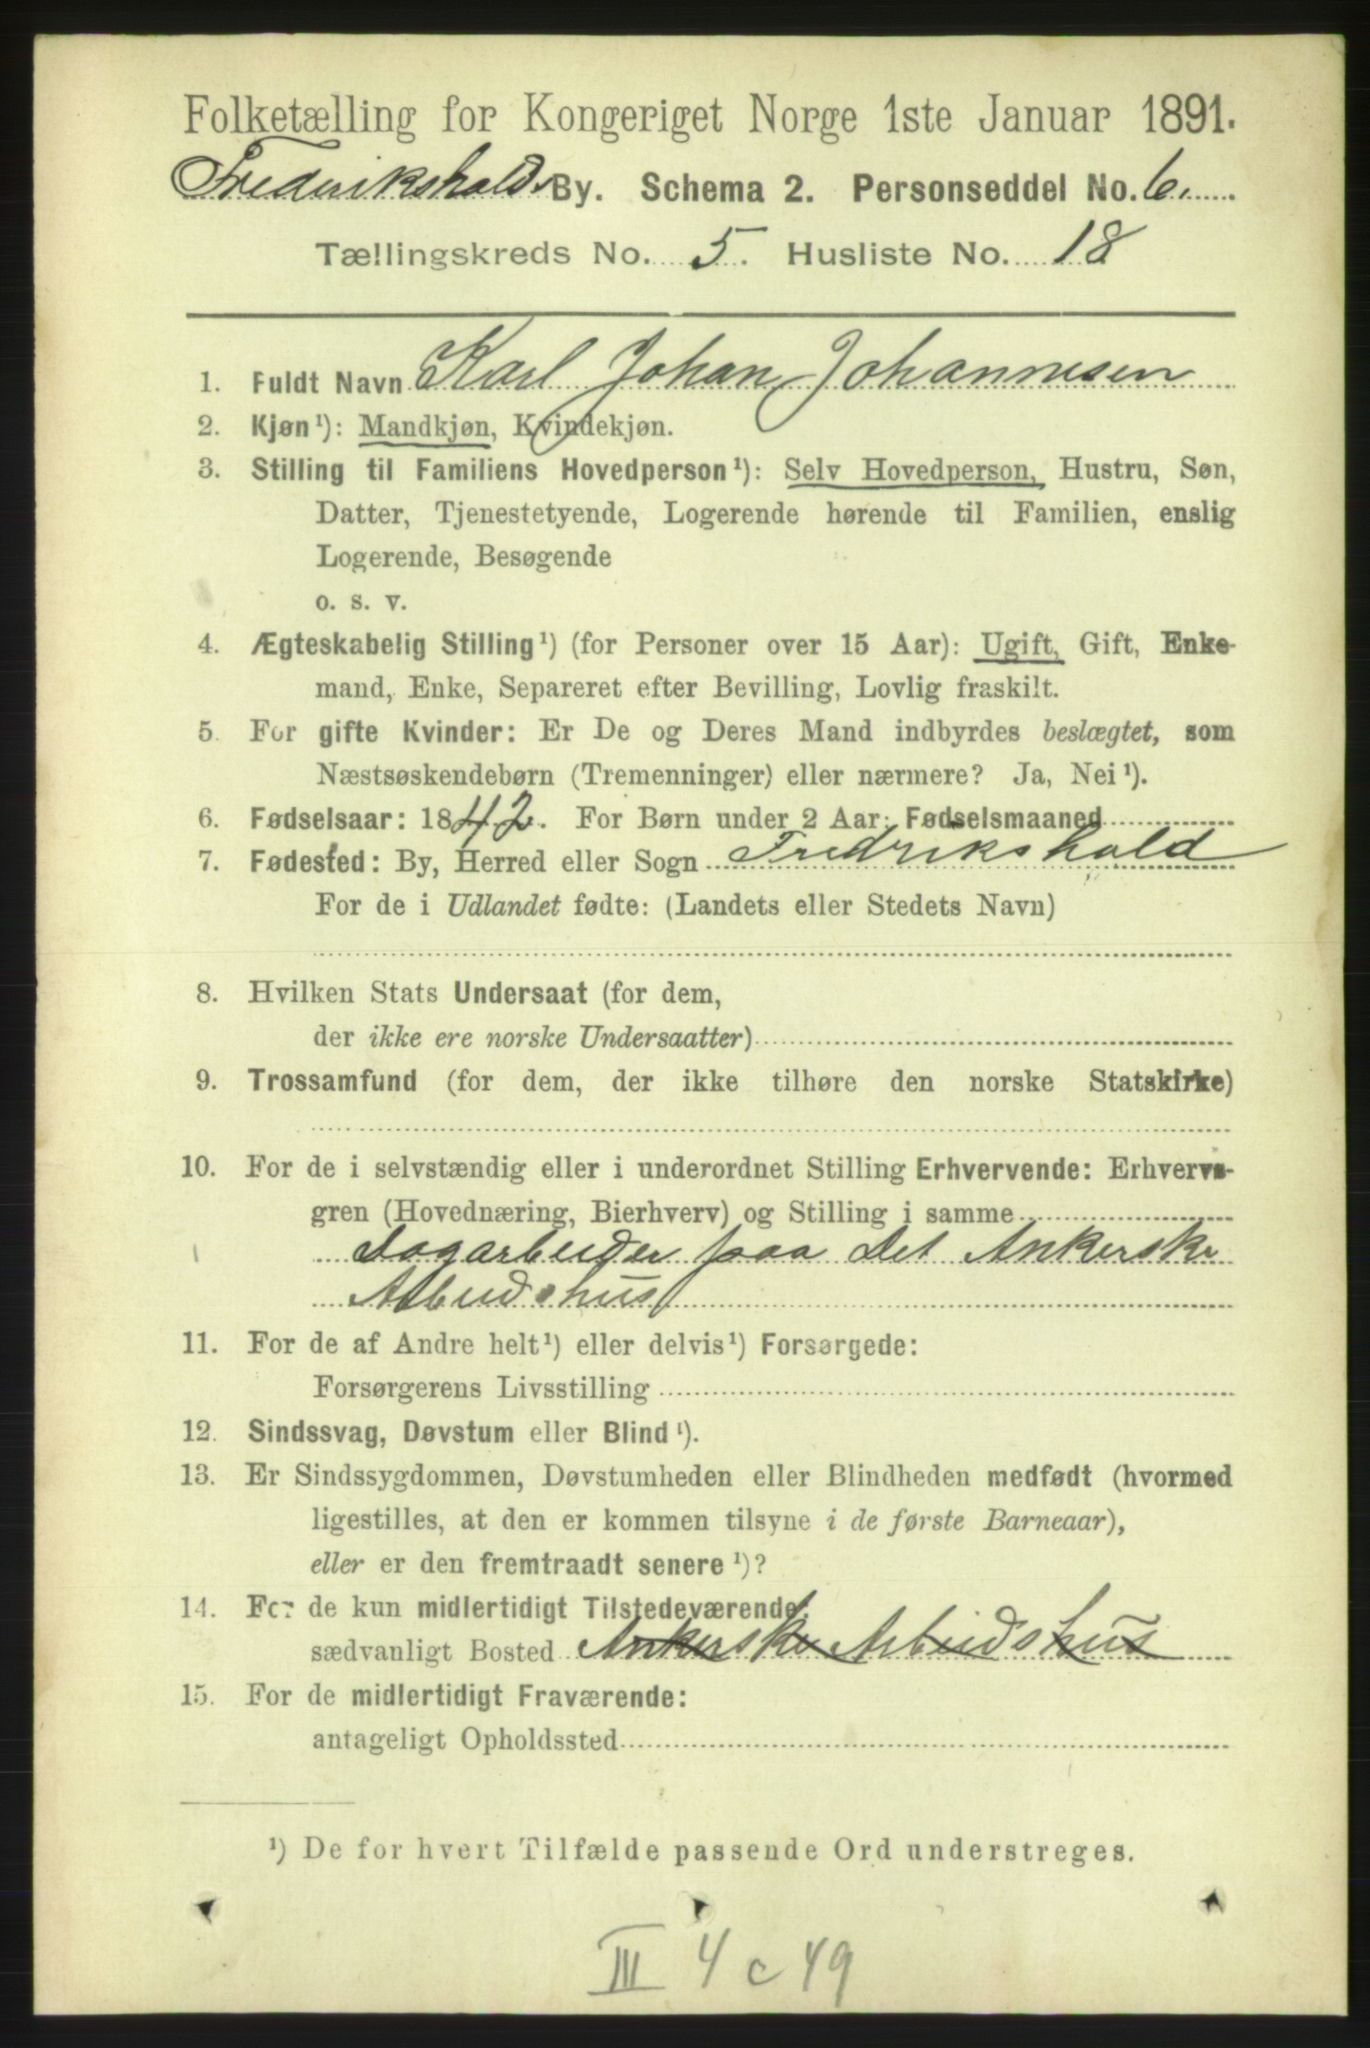 Folketælling for Kongeriget Norge 1ste Januar 1891.
Frederikshalds By. Schema 2. Personseddel No. 6.
Tællingskreds No. 5. Husliste No. 18
1. Fuldt Navn Karl Johan Johannesen
2. Kjøn¹): Mandkjøn, Kvindekjøn.
3. Stilling til Familiens Hovedperson¹): Selv Hovedperson, Hustru, Søn,
Datter, Tjenestetyende, Logerende hørende til Familien, enslig
Logerende, Besøgende
o. s. v.
4. Ægteskabelig Stilling¹) (for Personer over 15 Aar): Ugift, Gift, Enke-
mand, Enke, Separeret efter Bevilling, Lovlig fraskilt.
5. For gifte Kvinder: Er De og Deres Mand indbyrdes beslægtet, som
Næstsøskendebørn (Tremenninger) eller nærmere? Ja, Nei¹).
6. Fødselsaar: 1842. For Børn under 2 Aar: Fødselsmaaned
7. Fødested: By, Herred eller Sogn Fredrikshald
For de i Udlandet fødte: (Landets eller Stedets Navn)
8. Hvilken Stats Undersaat (for dem,
der ikke ere norske Undersaatter)
9. Trossamfund (for dem, der ikke tilhøre den norske Statskirke)
10. For de i selvstændig eller i underordnet Stilling Erhvervende: Erhvervs-
gren (Hovednæring, Bierhverv) og Stilling i samme
Dagarbeider paa Det Ankerske
Arbeidshus
11. For de af Andre helt¹) eller delvis¹) Forsørgede:
Forsørgerens Livsstilling
12. Sindssvag, Døvstum eller Blind¹).
13. Er Sindssygdommen, Døvstumheden eller Blindheden medfødt (hvormed
ligestilles, at den er kommen tilsyne i de første Barneaar),
eller er den fremtraadt senere¹)?
14. For de kun midlertidigt Tilstedeværende:
sædvanligt Bosted Ankerske Arbeidshus
15. For de midlertidigt Fraværende:
antageligt Opholdssted
¹) De for hvert Tilfælde passende Ord understreges.
III 4 c 49